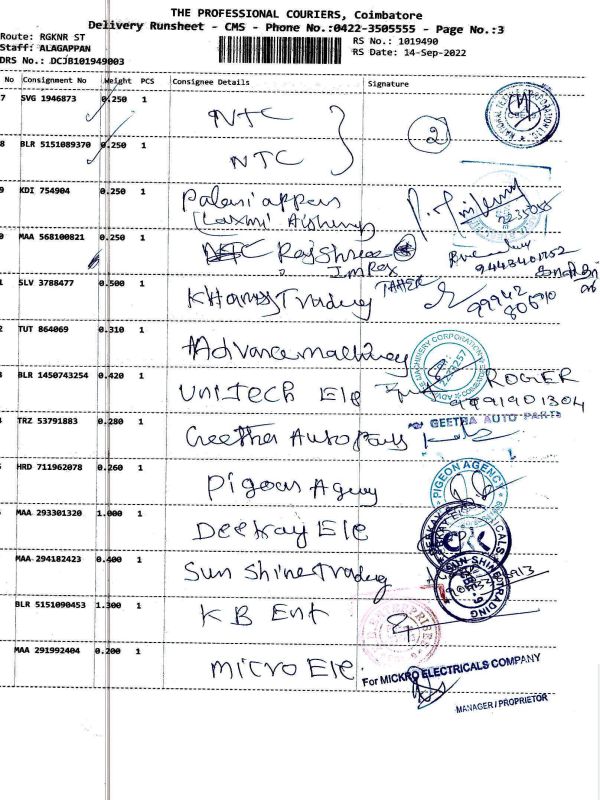 THE PROFESSIONAL COURIERS, Coimbatore
Delivery Runsheet - CMS - Phone No.:0422-3505555 - Page No.:3
Route: RGKNR ST
RS No.: 1019490
Staff: ALAGAPPAN
RS Date: 14-Sep-2022
DRS No.: DCJB101949003
No Consignment No Weight PCS Consignee Details Signature
7 SVG 1946873 0.250 1 NTC
8 BLR 5151089370 0.250 1 NTC 2
9 KDI 754904 0.250 1 Palaniappan
(Laxmi
0 MAA 568100821 0.250 1 Rajshree
ImPex
9443401752
1 SLV 3788477 0.500 1 Trading TAHER
99942
2 TUT 864069 0.310 1 Advance machinery
BLR 1450743254 0.420 1 Unitech Ele ROGER
9791901304
TRZ 53791883 0.280 1 Geetha Auto Parts GEETHA AUTO PARTS
HRD 711962078 0.260 1 Pigeon Agency PIGEON AGENCY
MAA 293301320 1.000 1 Deekay Ele
MAA 294182423 0.400 1 Sun Shine Trading
BLR 5151090453 1.300 1 KB Ent
MAA 291992404 0.200 1 micro Ele
For MICKRO ELECTRICALS COMPANY
MANAGER / PROPRIETOR